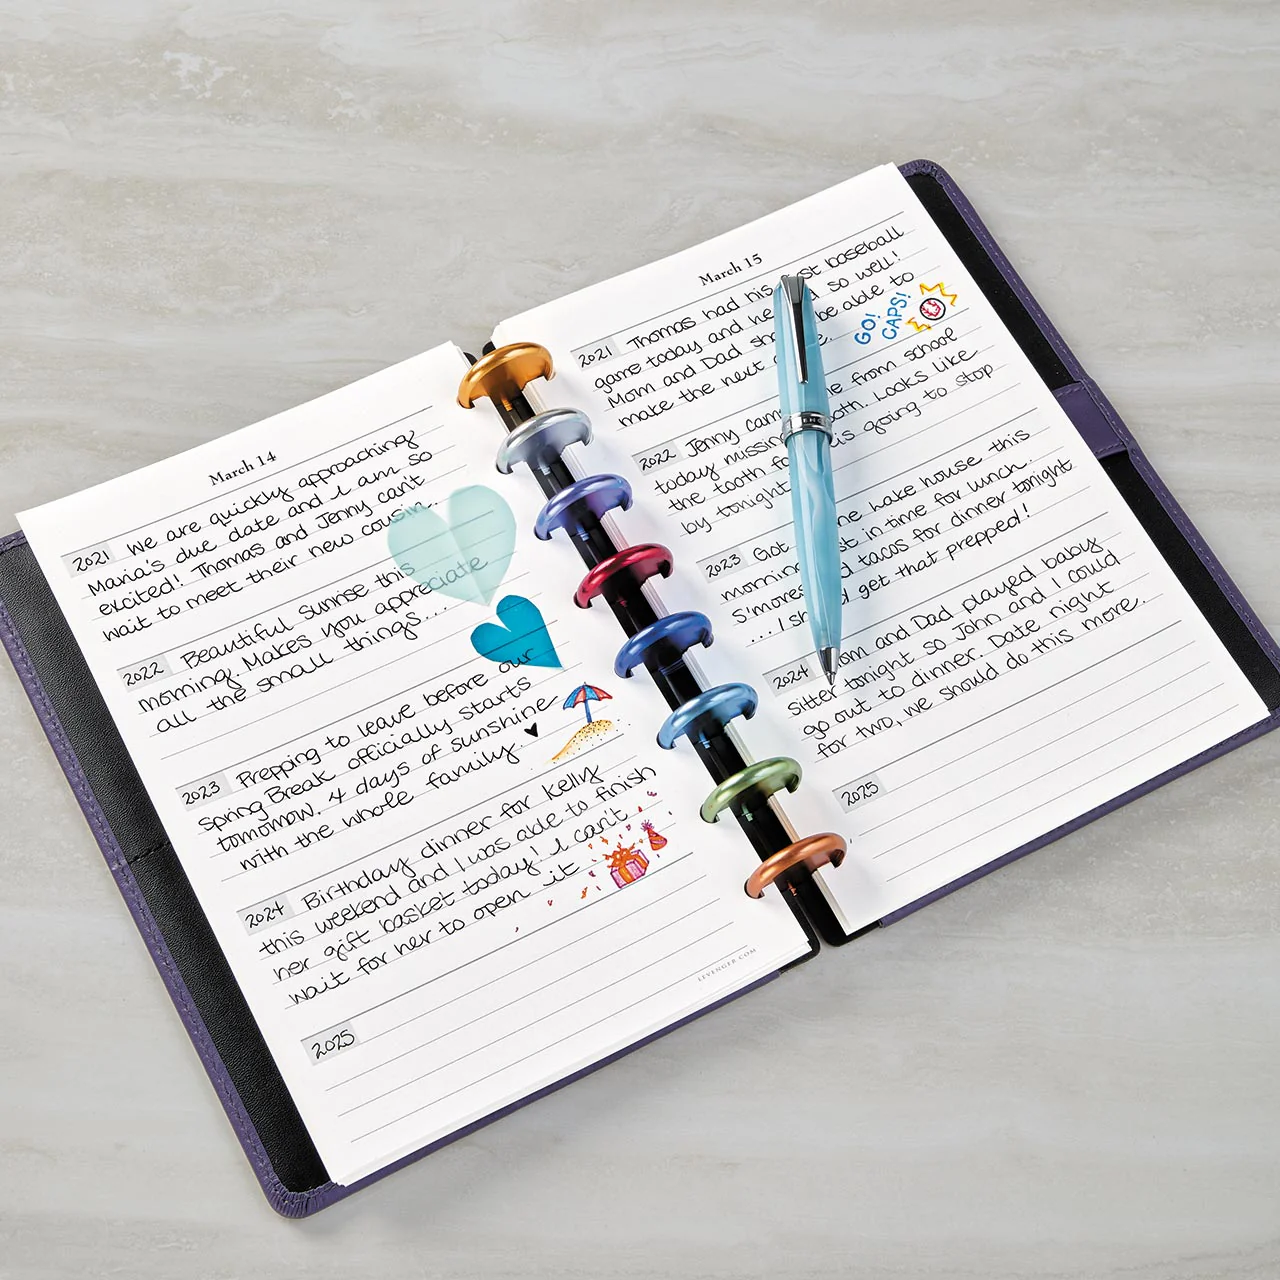 March 14
2021 We are quickly approaching
Maria's due date and I am so
excited! Thomas and Jenny can't
wait to meet their new cousin.
2022 Beautiful sunrise this
morning. Makes you appreciate
all the small things...
2023 Prepping to leave before our
Spring Break officially starts
tomorrow. 4 days of sunshine
with the whole family.
2024 Birthday dinner for Kelly
this weekend and I was able to finish
her gift basket today! I can't
wait for her to open it
2025
LEVENGER.COM
March 15
2021 Thomas had his baseball
game today and he so well!
Mom and Dad be able to
make the next
GO!
CAPS!
2022 Jenny from school
today missing Looks like
the tooth is going to stop
by tonight
2023 Got lake house this
morning in time for lunch.
S'mores tacos for dinner tonight
... I get that prepped!
2024 and Dad played baby
sitter tonight so John and I could
go out to dinner. Date night
for two, we should do this more.
2025